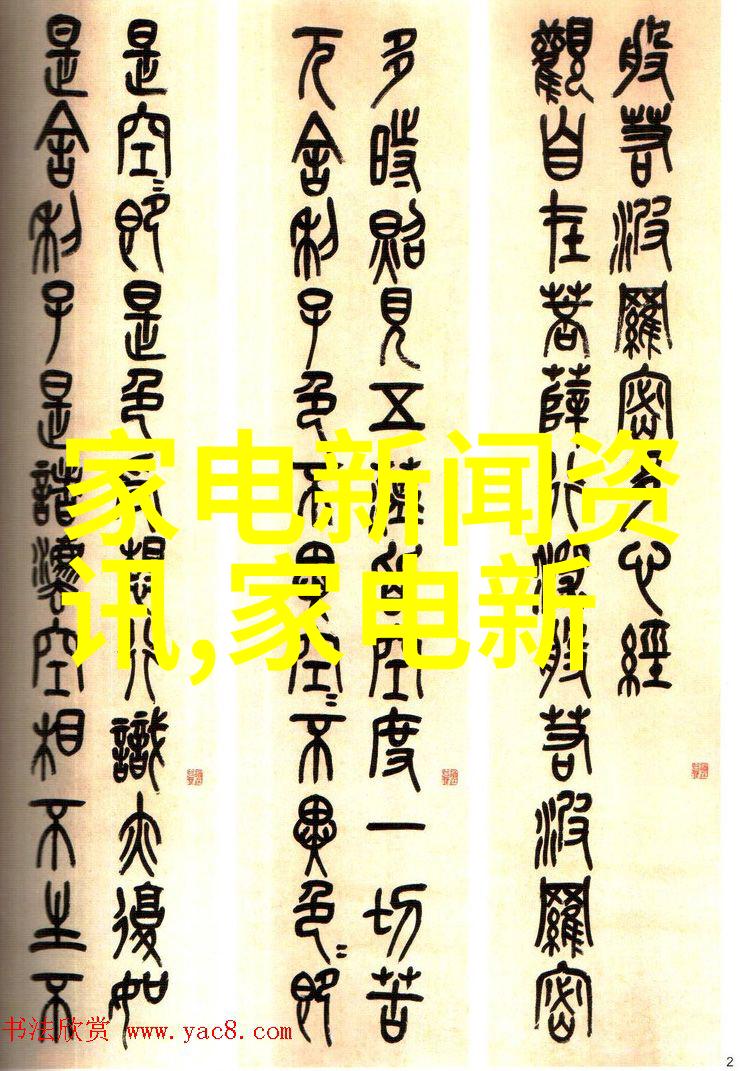 般若波羅密多心經
觀自在菩薩行深般若波羅密
多時照見五蘊皆空度一切苦
厄舍利子色不異空〻不異色〻即
是空〻即是色受想行識亦復如
是舍利子是諸灋空相不生不
家电新闻资
讯,家电新
书法欣赏 www.yac8.com
2